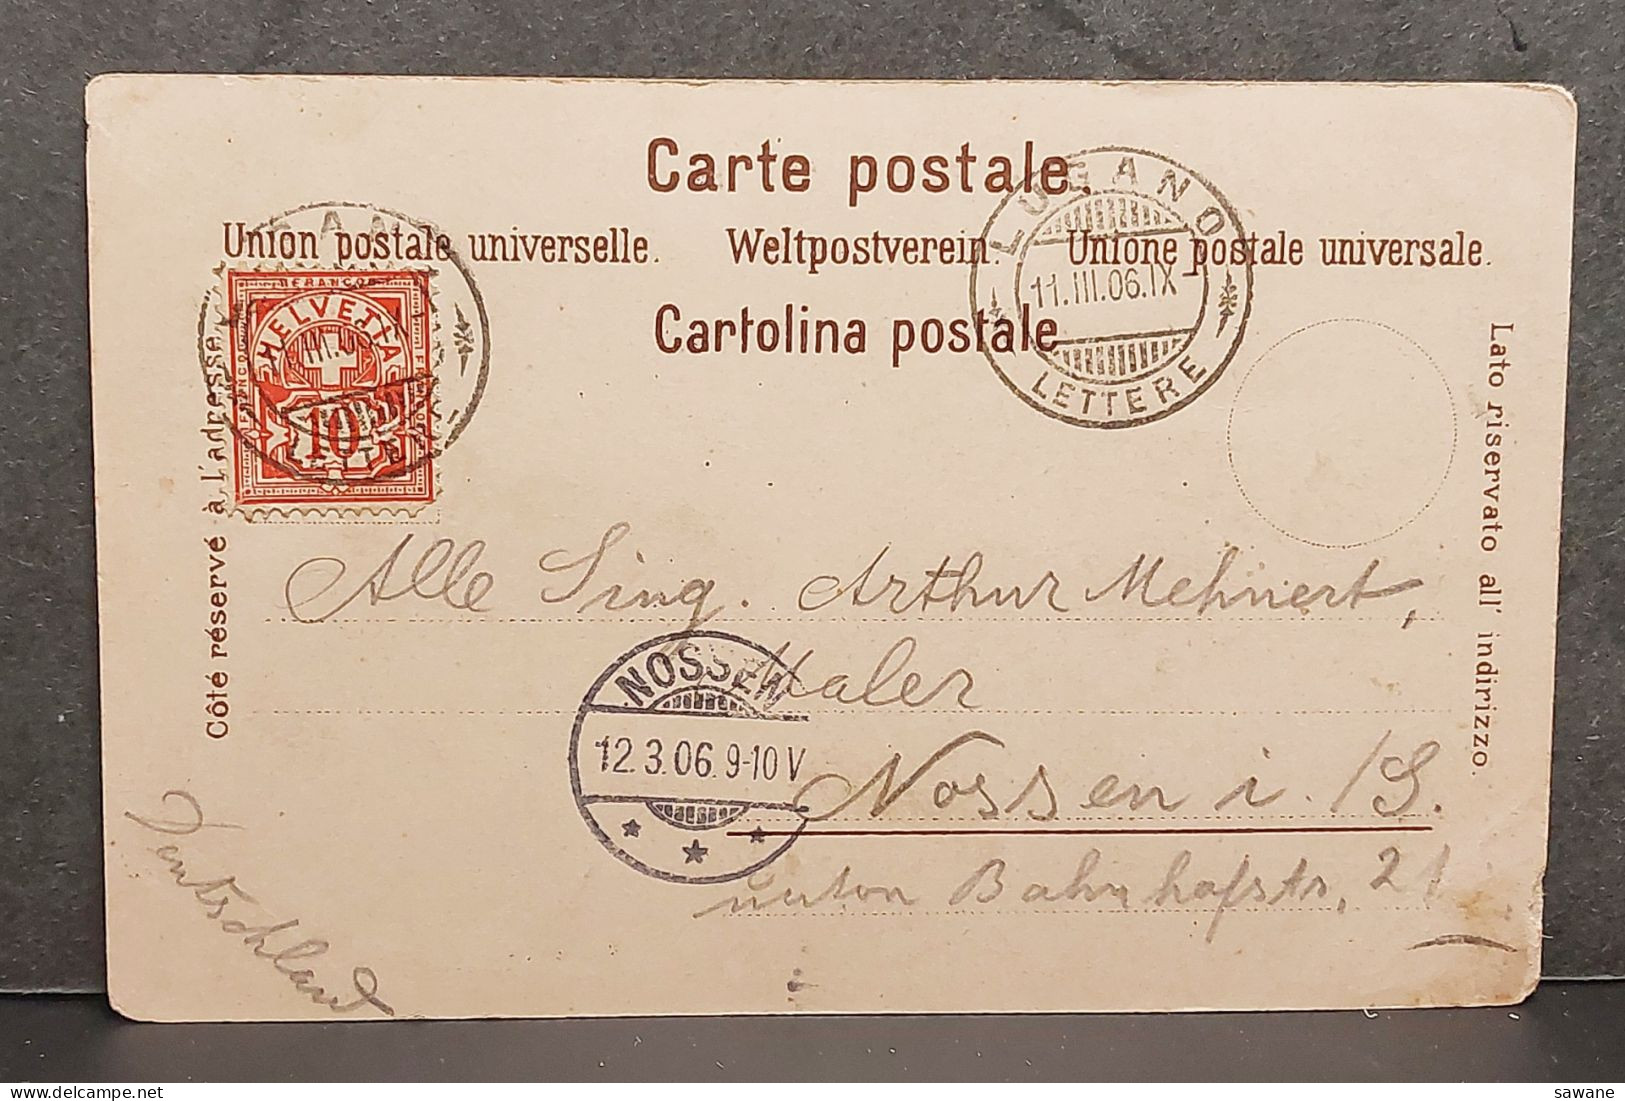 Carte postale.
Union postale universelle. Weltpostverein. Unione postale universale.
Cartolina postale
LUGANO
11.III.06.IX
LETTERE
HELVETIA
10
Côté réservé à l'adresse
Lato riservato all' indirizzo.
Alle Sing. Arthur Mehnert,
Maler
Nossen i./S.
Bahnhofstr. 21
NOSSEN
12.3.06.9-10V
Deutschland
sawane